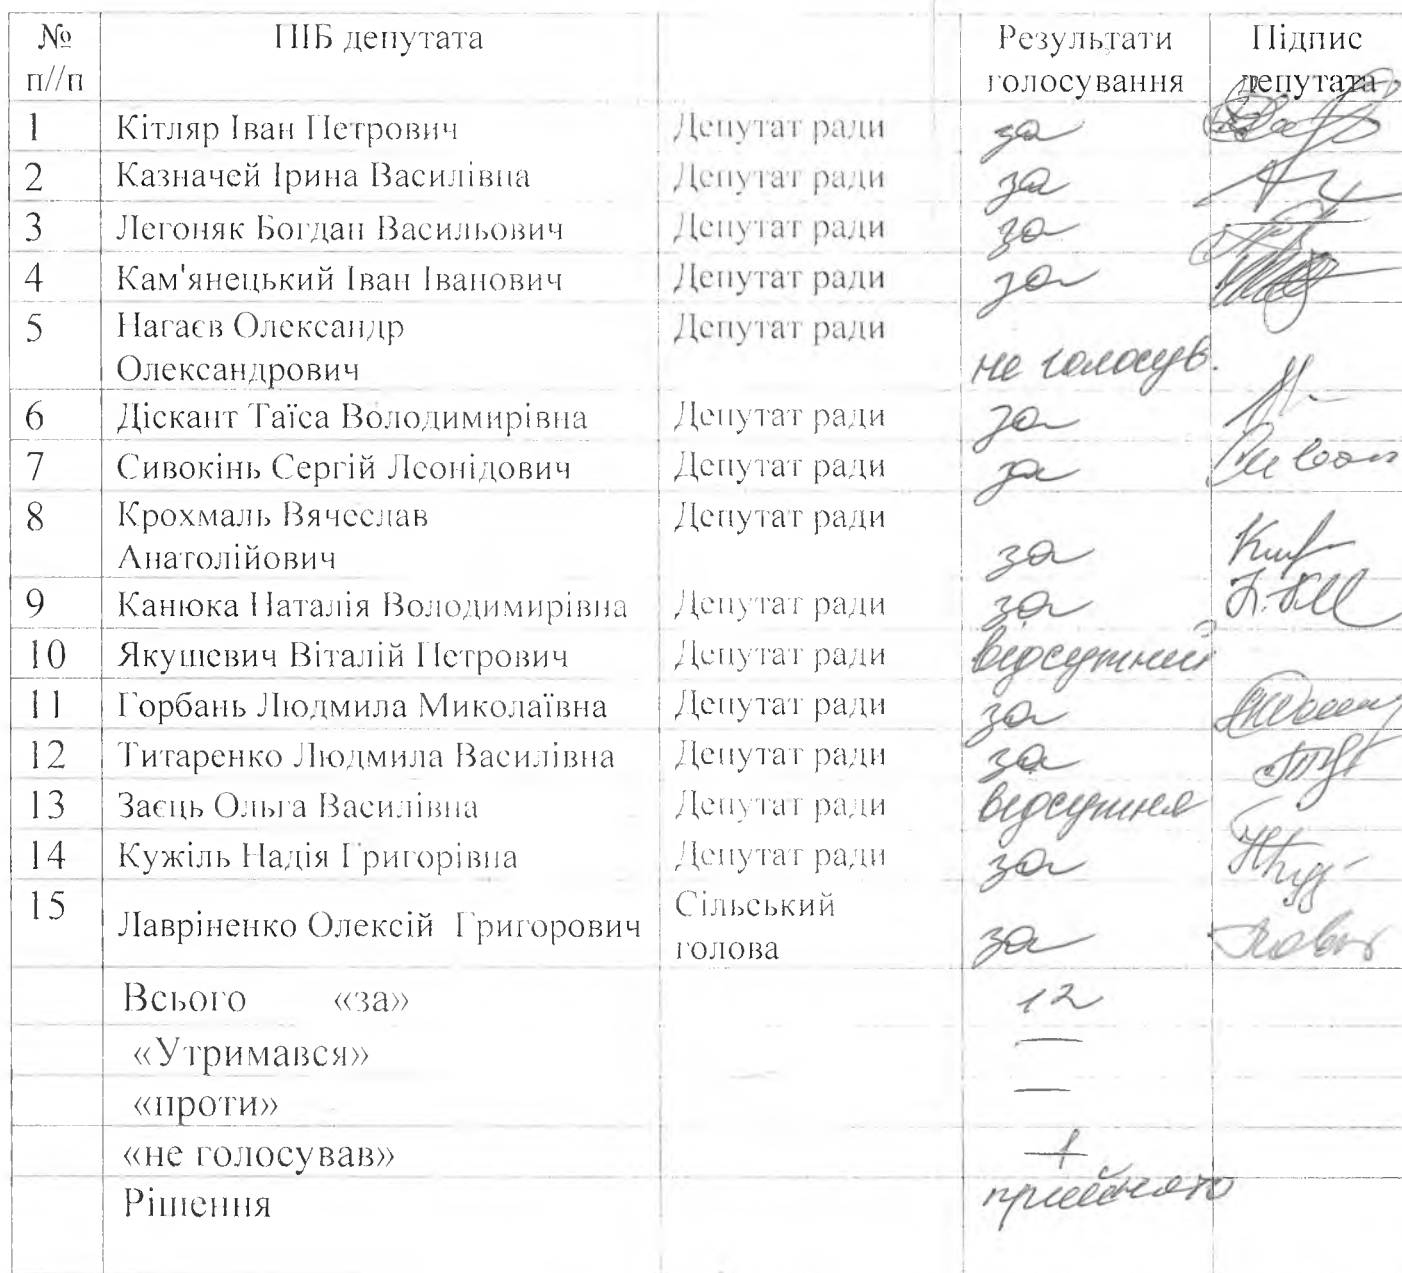 № ПІБ депутата Результати Підпис
п//п голосування депутата
1 Кітляр Іван Петрович Депутат ради за
2 Казначей Ірина Василівна Депутат ради за
3 Легоняк Богдан Васильович Депутат ради за
4 Кам'янецький Іван Іванович Депутат ради за
5 Нагаєв Олександр Депутат ради
Олександрович не голосув.
6 Діскант Таїса Володимирівна Депутат ради за
7 Сивокінь Сергій Леонідович Депутат ради за
8 Крохмаль Вячеслав Депутат ради
Анатолійович за
9 Канюка Наталія Володимирівна Депутат ради за
10 Якушевич Віталій Петрович Депутат ради відсутний
11 Горбань Людмила Миколаївна Депутат ради за
12 Титаренко Людмила Василівна Депутат ради за
13 Заєць Ольга Василівна Депутат ради відсутня
14 Кужіль Надія Григорівна Депутат ради за
15 Сільський
Лавріненко Олексій Григорович голова за
Всього «за» 12
«Утримався» —
«проти» —
«не голосував» 1
Рішення прийнято